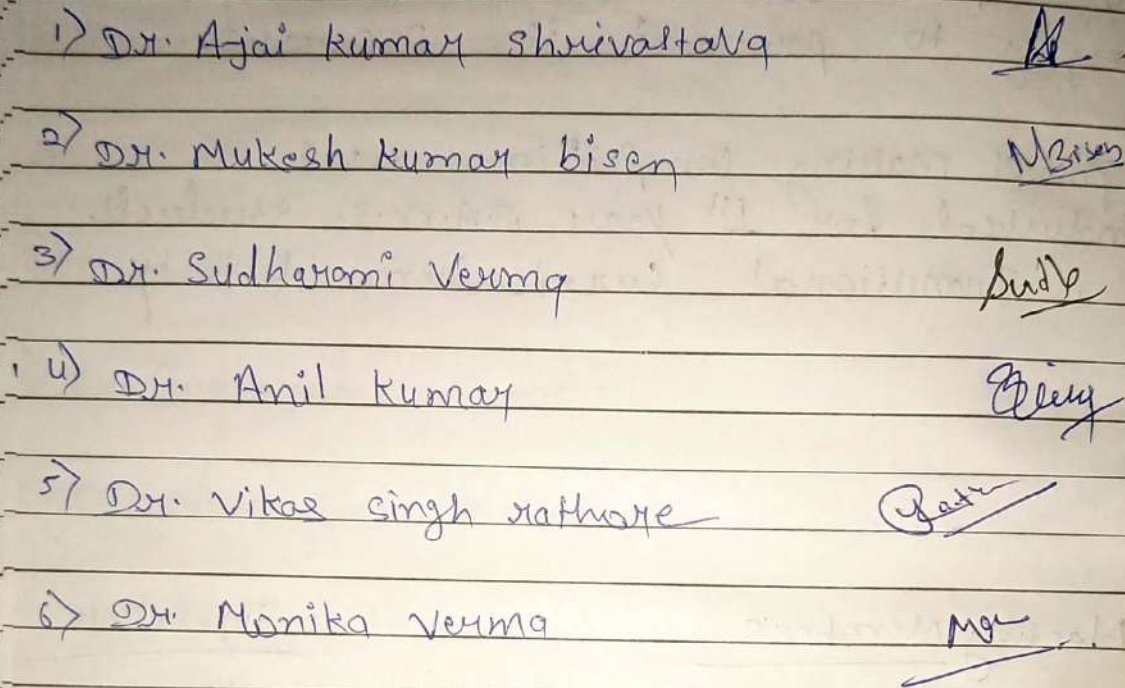 1) Dr. Ajai kumar shrivastava
2) Dr. Mukesh kumar bisen MBisen
3) Dr. Sudharani Verma Sudh
4) Dr. Anil kumar
5) Dr. Vikas singh rathore
6) Dr. Monika verma